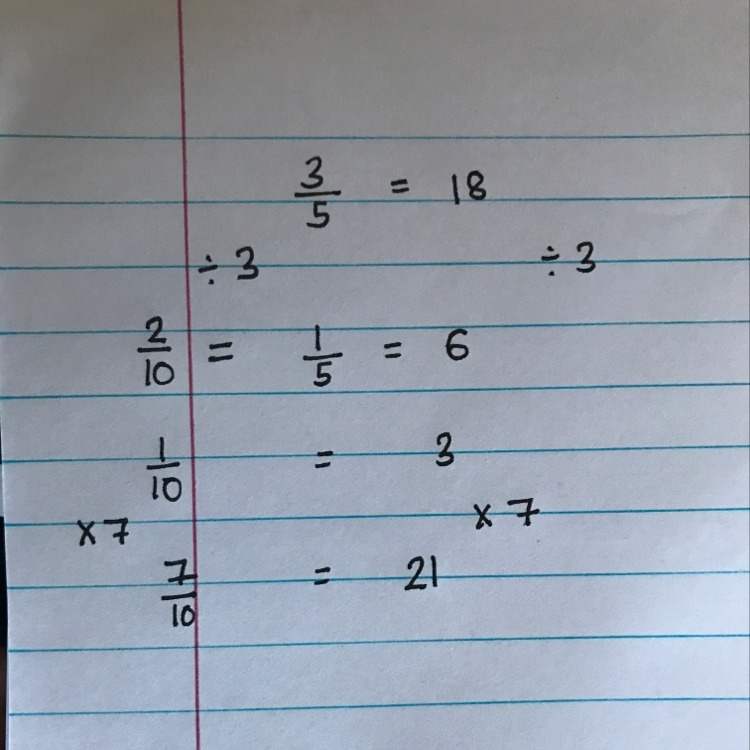 3/5 = 18
÷ 3 ÷ 3
2/10 = 1/5 = 6
1/10 = 3
× 7 × 7
7/10 = 21